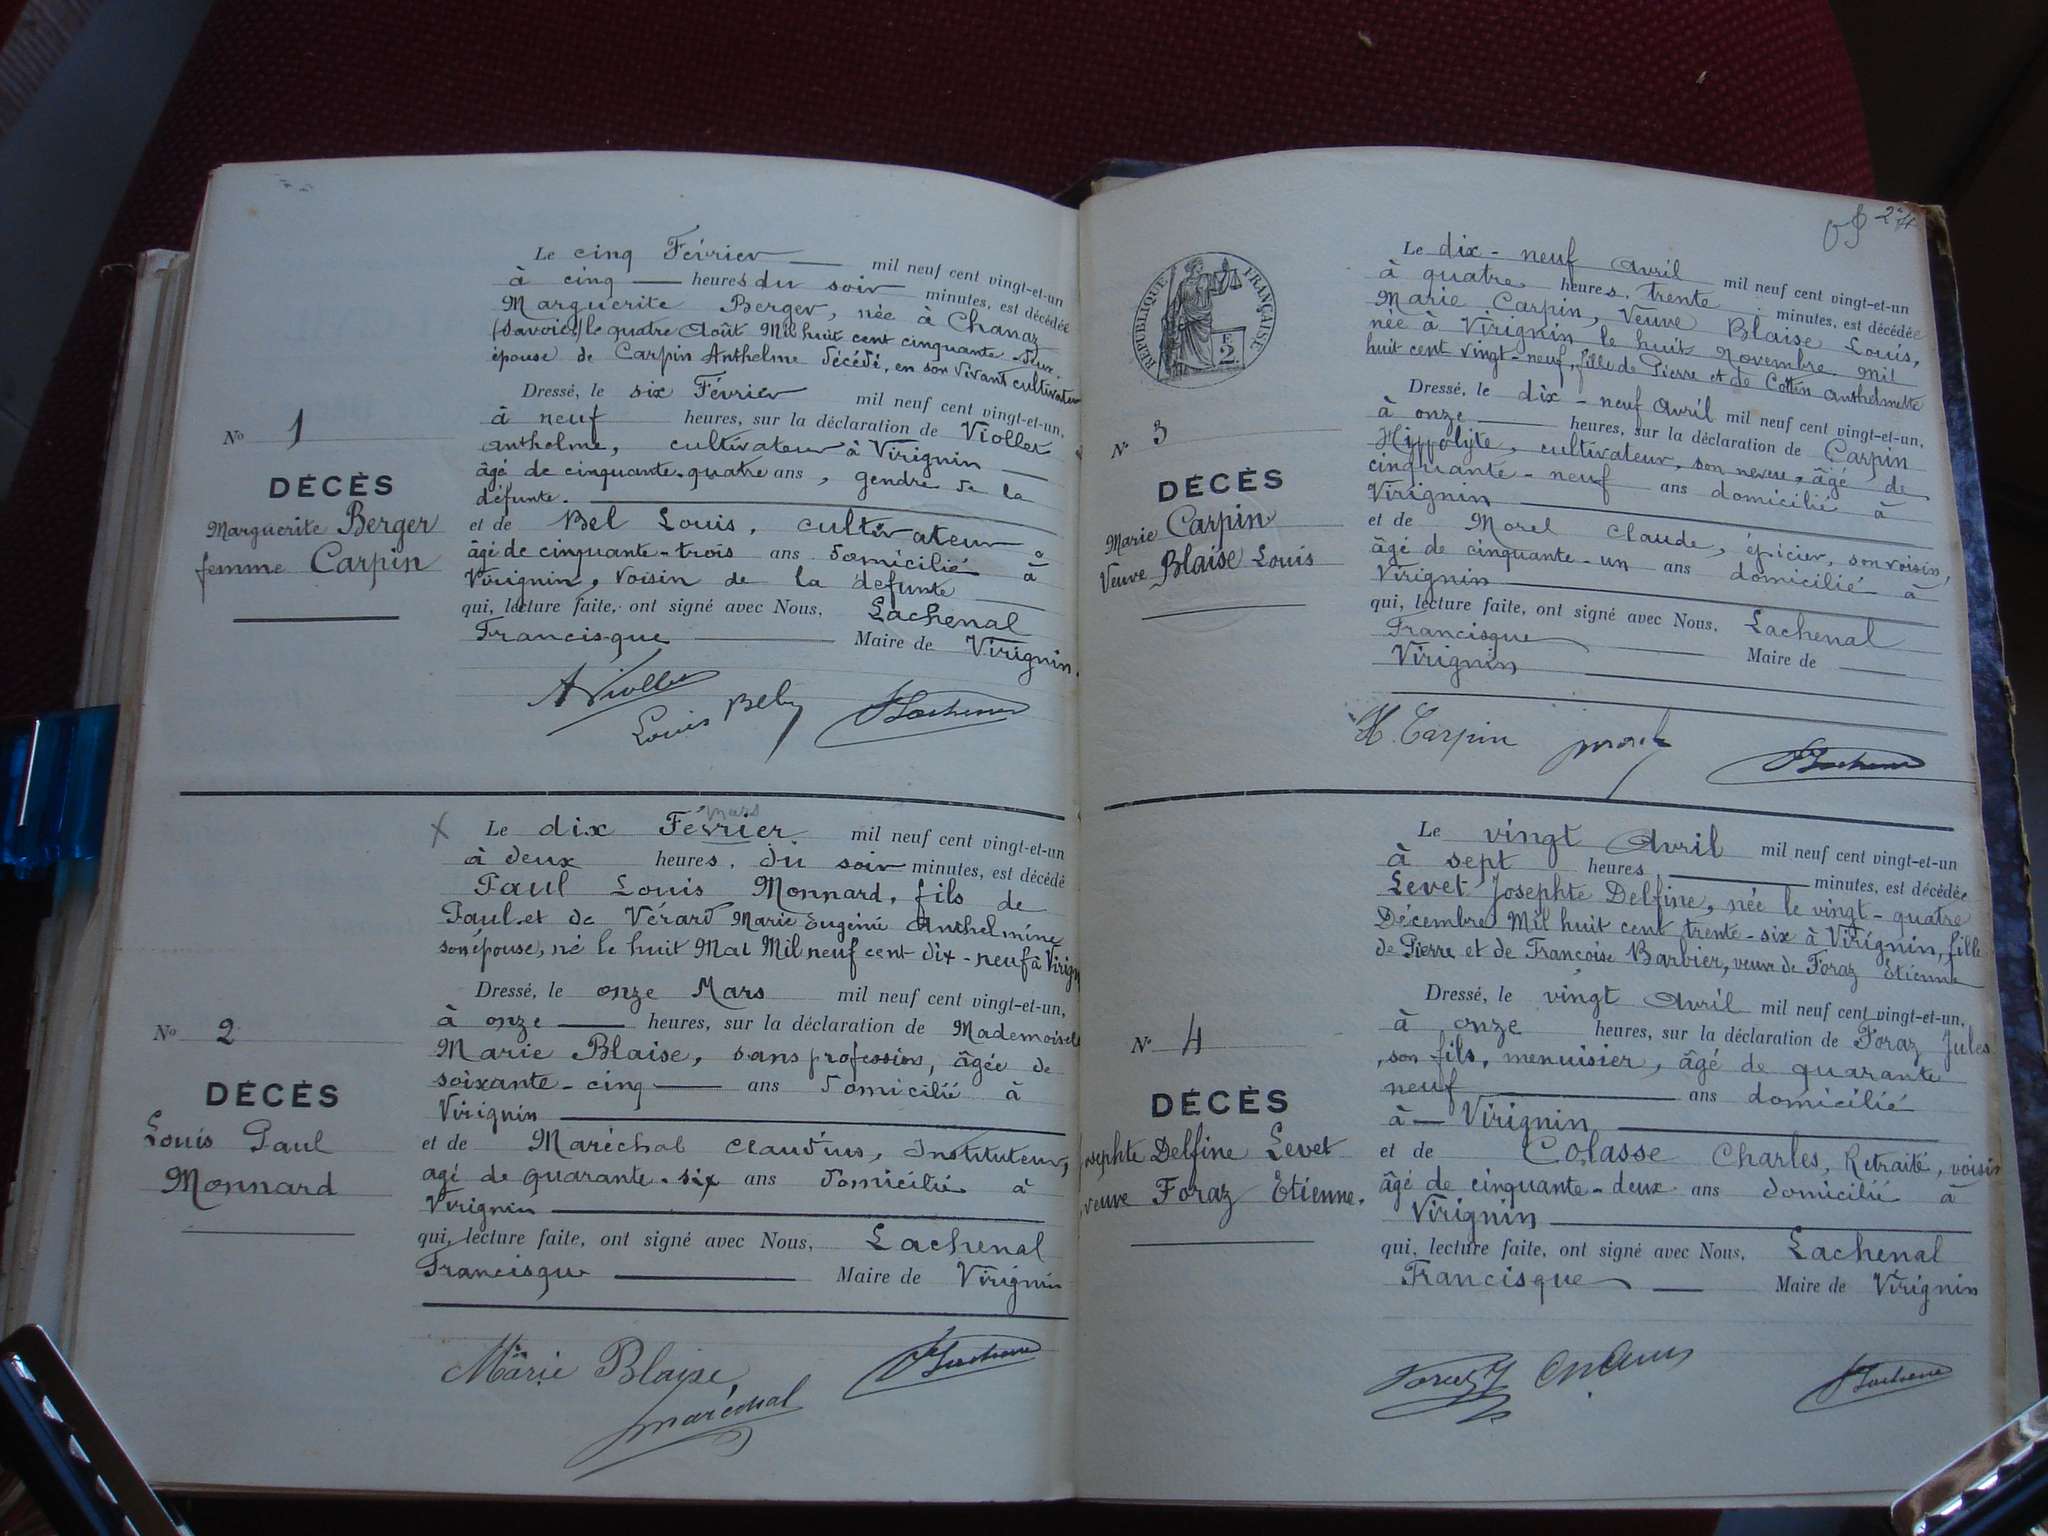 Le cinq Février mil neuf cent vingt-et-un
à cinq heures du soir minutes, est décédée
Marguerite Berger, née à Chanaz
(Savoie) le quatre Août Mil huit cent cinquante-deux.
épouse de Carpin Anthelme décédé, en son vivant cultivateur
Dressé, le six Février mil neuf cent vingt-et-un,
à neuf heures, sur la déclaration de Viollet
Anthelme, cultivateur à Virignin
âgé de cinquante-quatre ans, gendre de la
défunte.
et de Bel Louis, cultivateur
âgé de cinquante-trois ans domicilié à
Virignin, voisin de la défunte
qui, lecture faite, ont signé avec Nous, Lachenal
Francisque Maire de Virignin.
A Viollet
Louis Bel
Lachenal
No 1
DÉCÈS
Marguerite Berger
femme Carpin
mars
X Le dix Février mil neuf cent vingt-et-un
à deux heures, du soir minutes, est décédé
Paul Louis Monnard, fils de
Paul et de Vérard Marie Eugénie Anthelmine
son épouse, né le huit Mai Mil neuf cent dix-neuf à Virign
Dressé, le onze Mars mil neuf cent vingt-et-un,
à onze heures, sur la déclaration de Mademoiselle
Marie Blaise, sans profession, âgée de
soixante-cinq ans domicilié à
Virignin
et de Maréchal Claudius, Instituteur,
âgé de quarante-six ans domicilié à
Virignin
qui, lecture faite, ont signé avec Nous, Lachenal
Francisque Maire de Virignin
Marie Blaise
Lachenal
Maréchal
No 2
DÉCÈS
Louis Paul
Monnard
24
RÉPUBLIQUE FRANÇAISE
E
2
Le dix-neuf Avril mil neuf cent vingt-et-un
à quatre heures, trente minutes, est décédée
Marie Carpin, Veuve Blaise Louis,
née à Virignin le huit Novembre Mil
huit cent vingt-neuf, fille de Pierre et de Cottin Anthelmette
Dressé, le dix-neuf Avril mil neuf cent vingt-et-un,
à onze heures, sur la déclaration de Carpin
Hippolyte, cultivateur, son neveu, âgé de
cinquante-neuf ans domicilié à
Virignin
et de Morel Claude, épicier, son voisin,
âgé de cinquante-un ans domicilié à
Virignin
qui, lecture faite, ont signé avec Nous, Lachenal
Francisque Maire de
Virignin
H. Carpin
Morel
Lachenal
No 3
DÉCÈS
Marie Carpin
Veuve Blaise Louis
Le vingt Avril mil neuf cent vingt-et-un
à sept heures minutes, est décédée
Levet Josephte Delfine, née le vingt-quatre
Décembre Mil huit cent trente-six à Virignin, fille
de Pierre et de Françoise Barbier, veuve de Foraz Etienne
Dressé, le vingt Avril mil neuf cent vingt-et-un,
à onze heures, sur la déclaration de Foraz Jules
, son fils, menuisier, âgé de quarante
neuf ans domicilié
à Virignin
et de Colasse Charles, Retraité, voisin
âgé de cinquante-deux ans domicilié à
Virignin
qui, lecture faite, ont signé avec Nous, Lachenal
Francisque Maire de Virignin
Foraz J
Lachenal
No 4
DÉCÈS
osephte Delfine Levet
veuve Foraz Etienne.